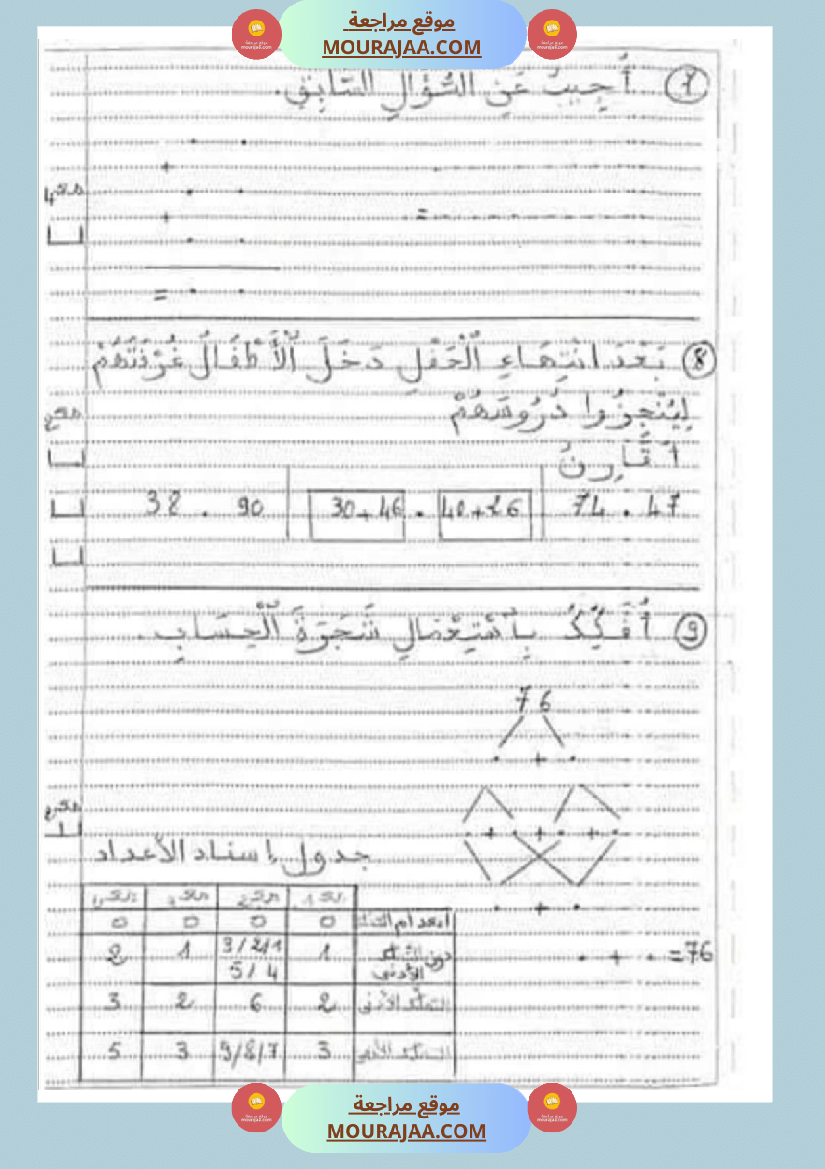 موقع مراجعة
MOURAJAA.COM
7 أُجِيبُ عَنِ السُّؤَالِ السَّابِقِ.
مع4
+
+
= 
=
8 بَعْدَ انْتِهَاءِ الْحَفْلِ دَخَلَ الْأَطْفَالُ غُرْفَتَهُمْ
لِيُنْجِزُوا دُرُوسَهُمْ
أُقَارِنُ
47 . 74
40+26 . 30+46
90 . 38
9 أُفَكِّكُ بِاسْتِعْمَالِ شَجَرَةِ الْحِسَابِ.
76
. + .
. + . + . + .
. + .
. + . =76
جدول إسناد الأعداد
مع1 مع2 مع3
انعدام التملك 0 0 0 0
دون التملك الأدنى 1 3/2/1 5/4 1 2
التملك الأدنى 2 6 2 3
التملك الأقصى 3 9/8/7 3 5
موقع مراجعة
MOURAJAA.COM